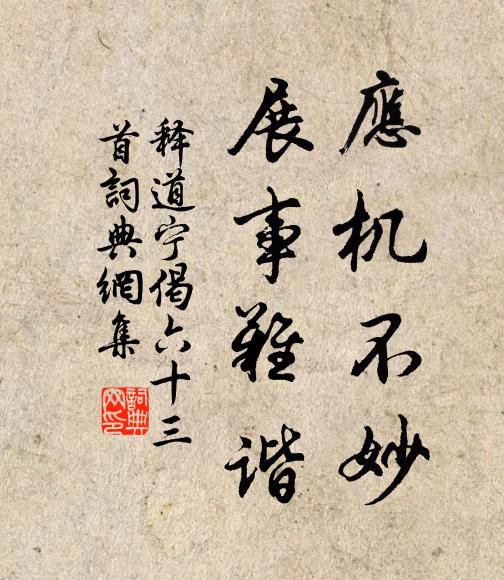 應机不妙
展事難谐
释道宁偈六十三
首詞典網集
詞典
网印